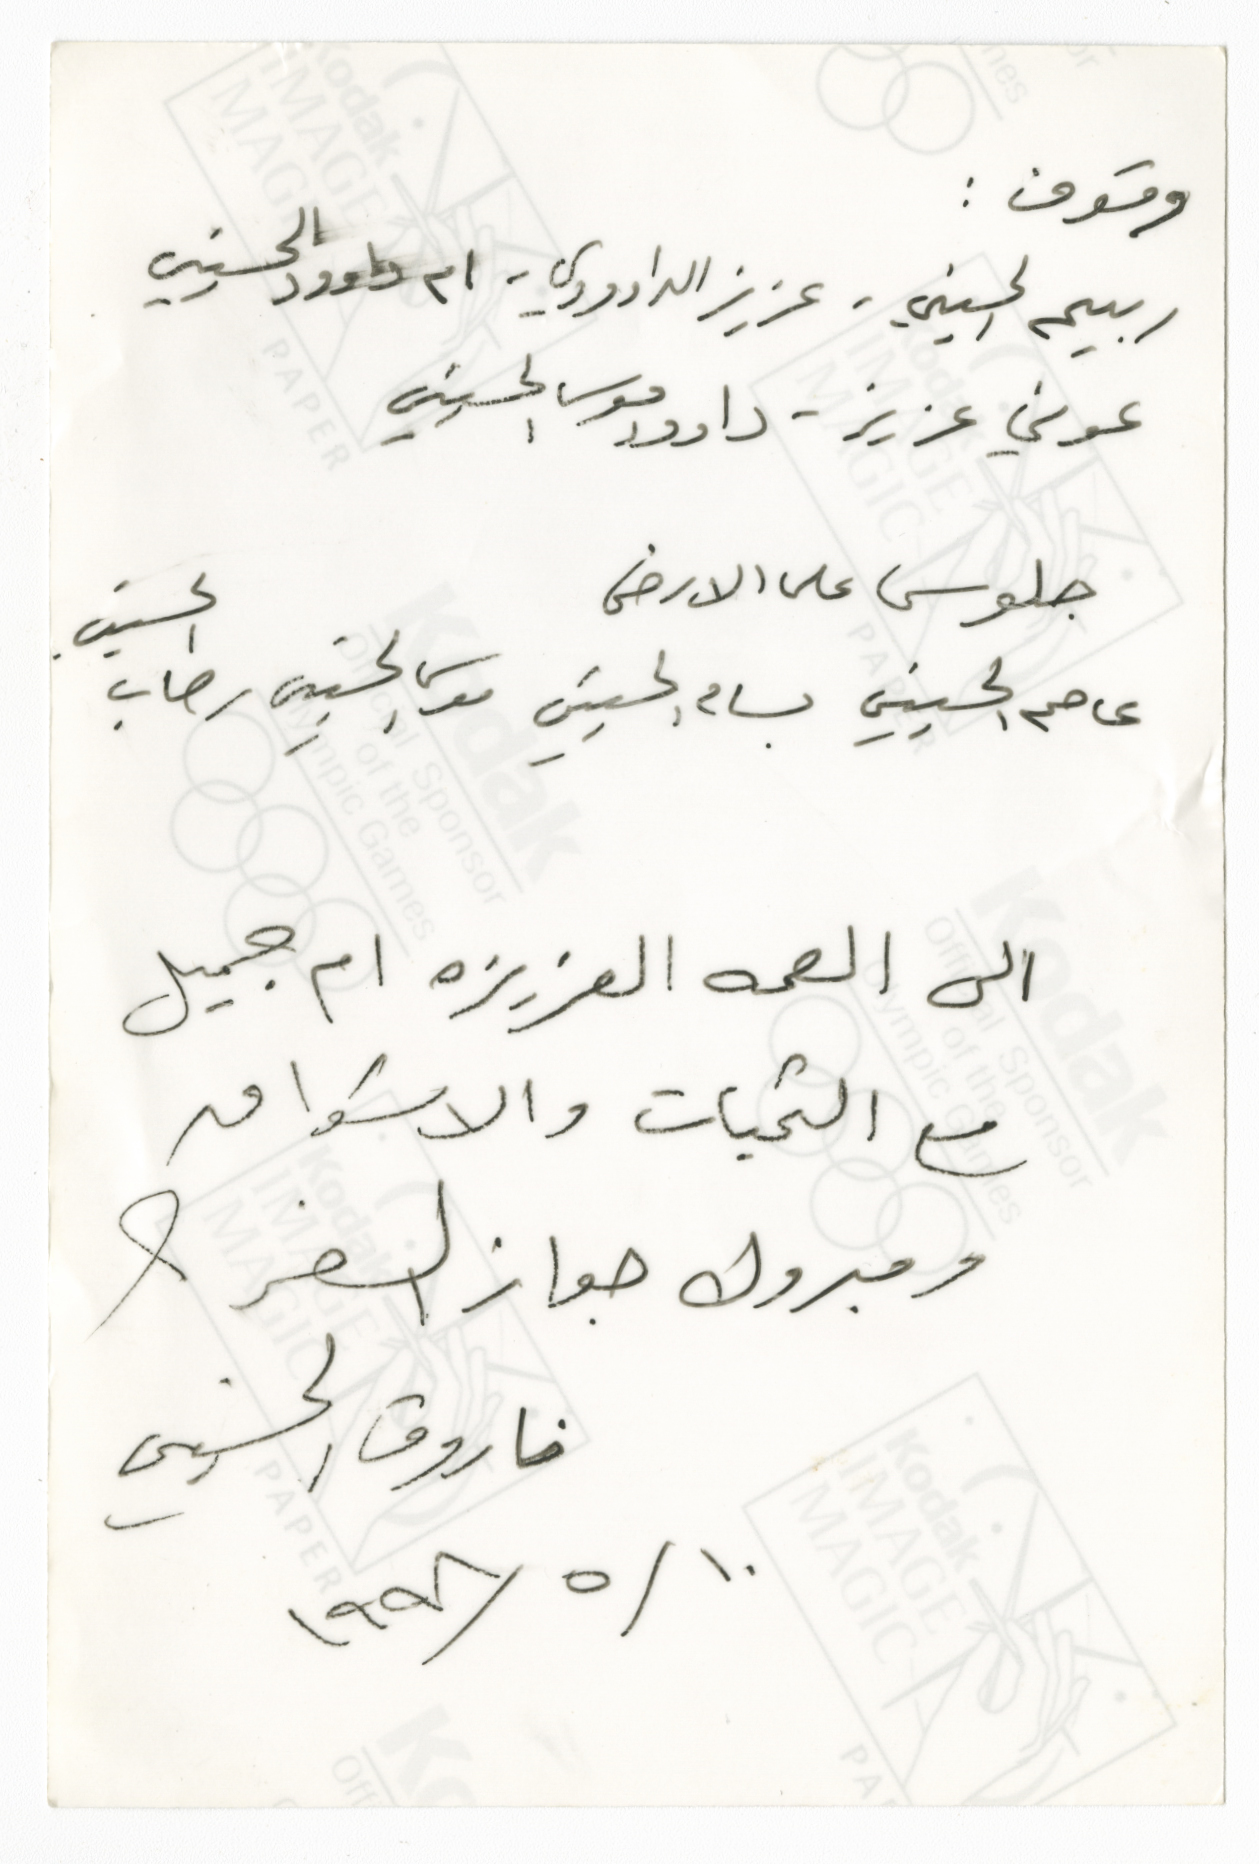 وقوف :
ربيع الحسيني - عزيز الداوودي - ام داوود الحسيني
عوني عزيز - داوود موسى الحسيني
جلوس على الارض
عاصم الحسيني بسام الحسيني موسى الحسيني رحاب الحسيني
الى العمه العزيزه ام جميل
مع التحيات والاشواق
ومبروك جواز السفر
فاروق الحسيني
١٠ / ٥ / ١٩٩٨
Kodak
IMAGE
MAGIC
PAPER
Kodak
Official Sponsor
of the
Olympic Games